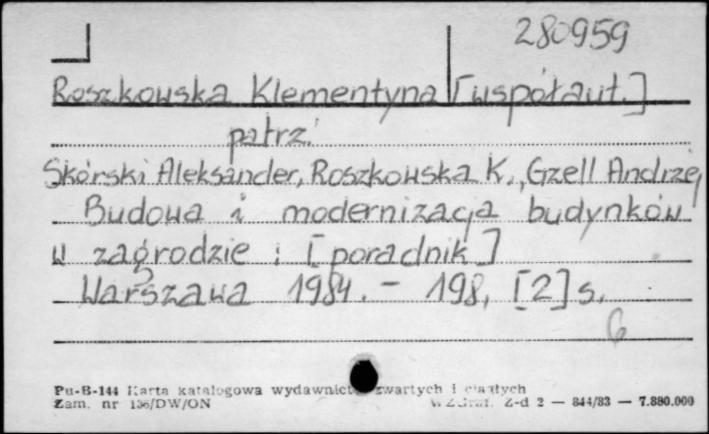 280959
Roszkowska Klementyna [współaut.]
patrz:
Skórski Aleksander, Roszkowska K., Gzell Andrzej
Budowa i modernizacja budynków
w zagrodzie : [poradnik]
Warszawa 1984. - 198, [2] s.
6
Pu-B-144 Karta katalogowa wydawnictw zwartych i ciągłych
Zam. nr 136/DW/ON Z-d 2 — 844/83 — 7.880.000